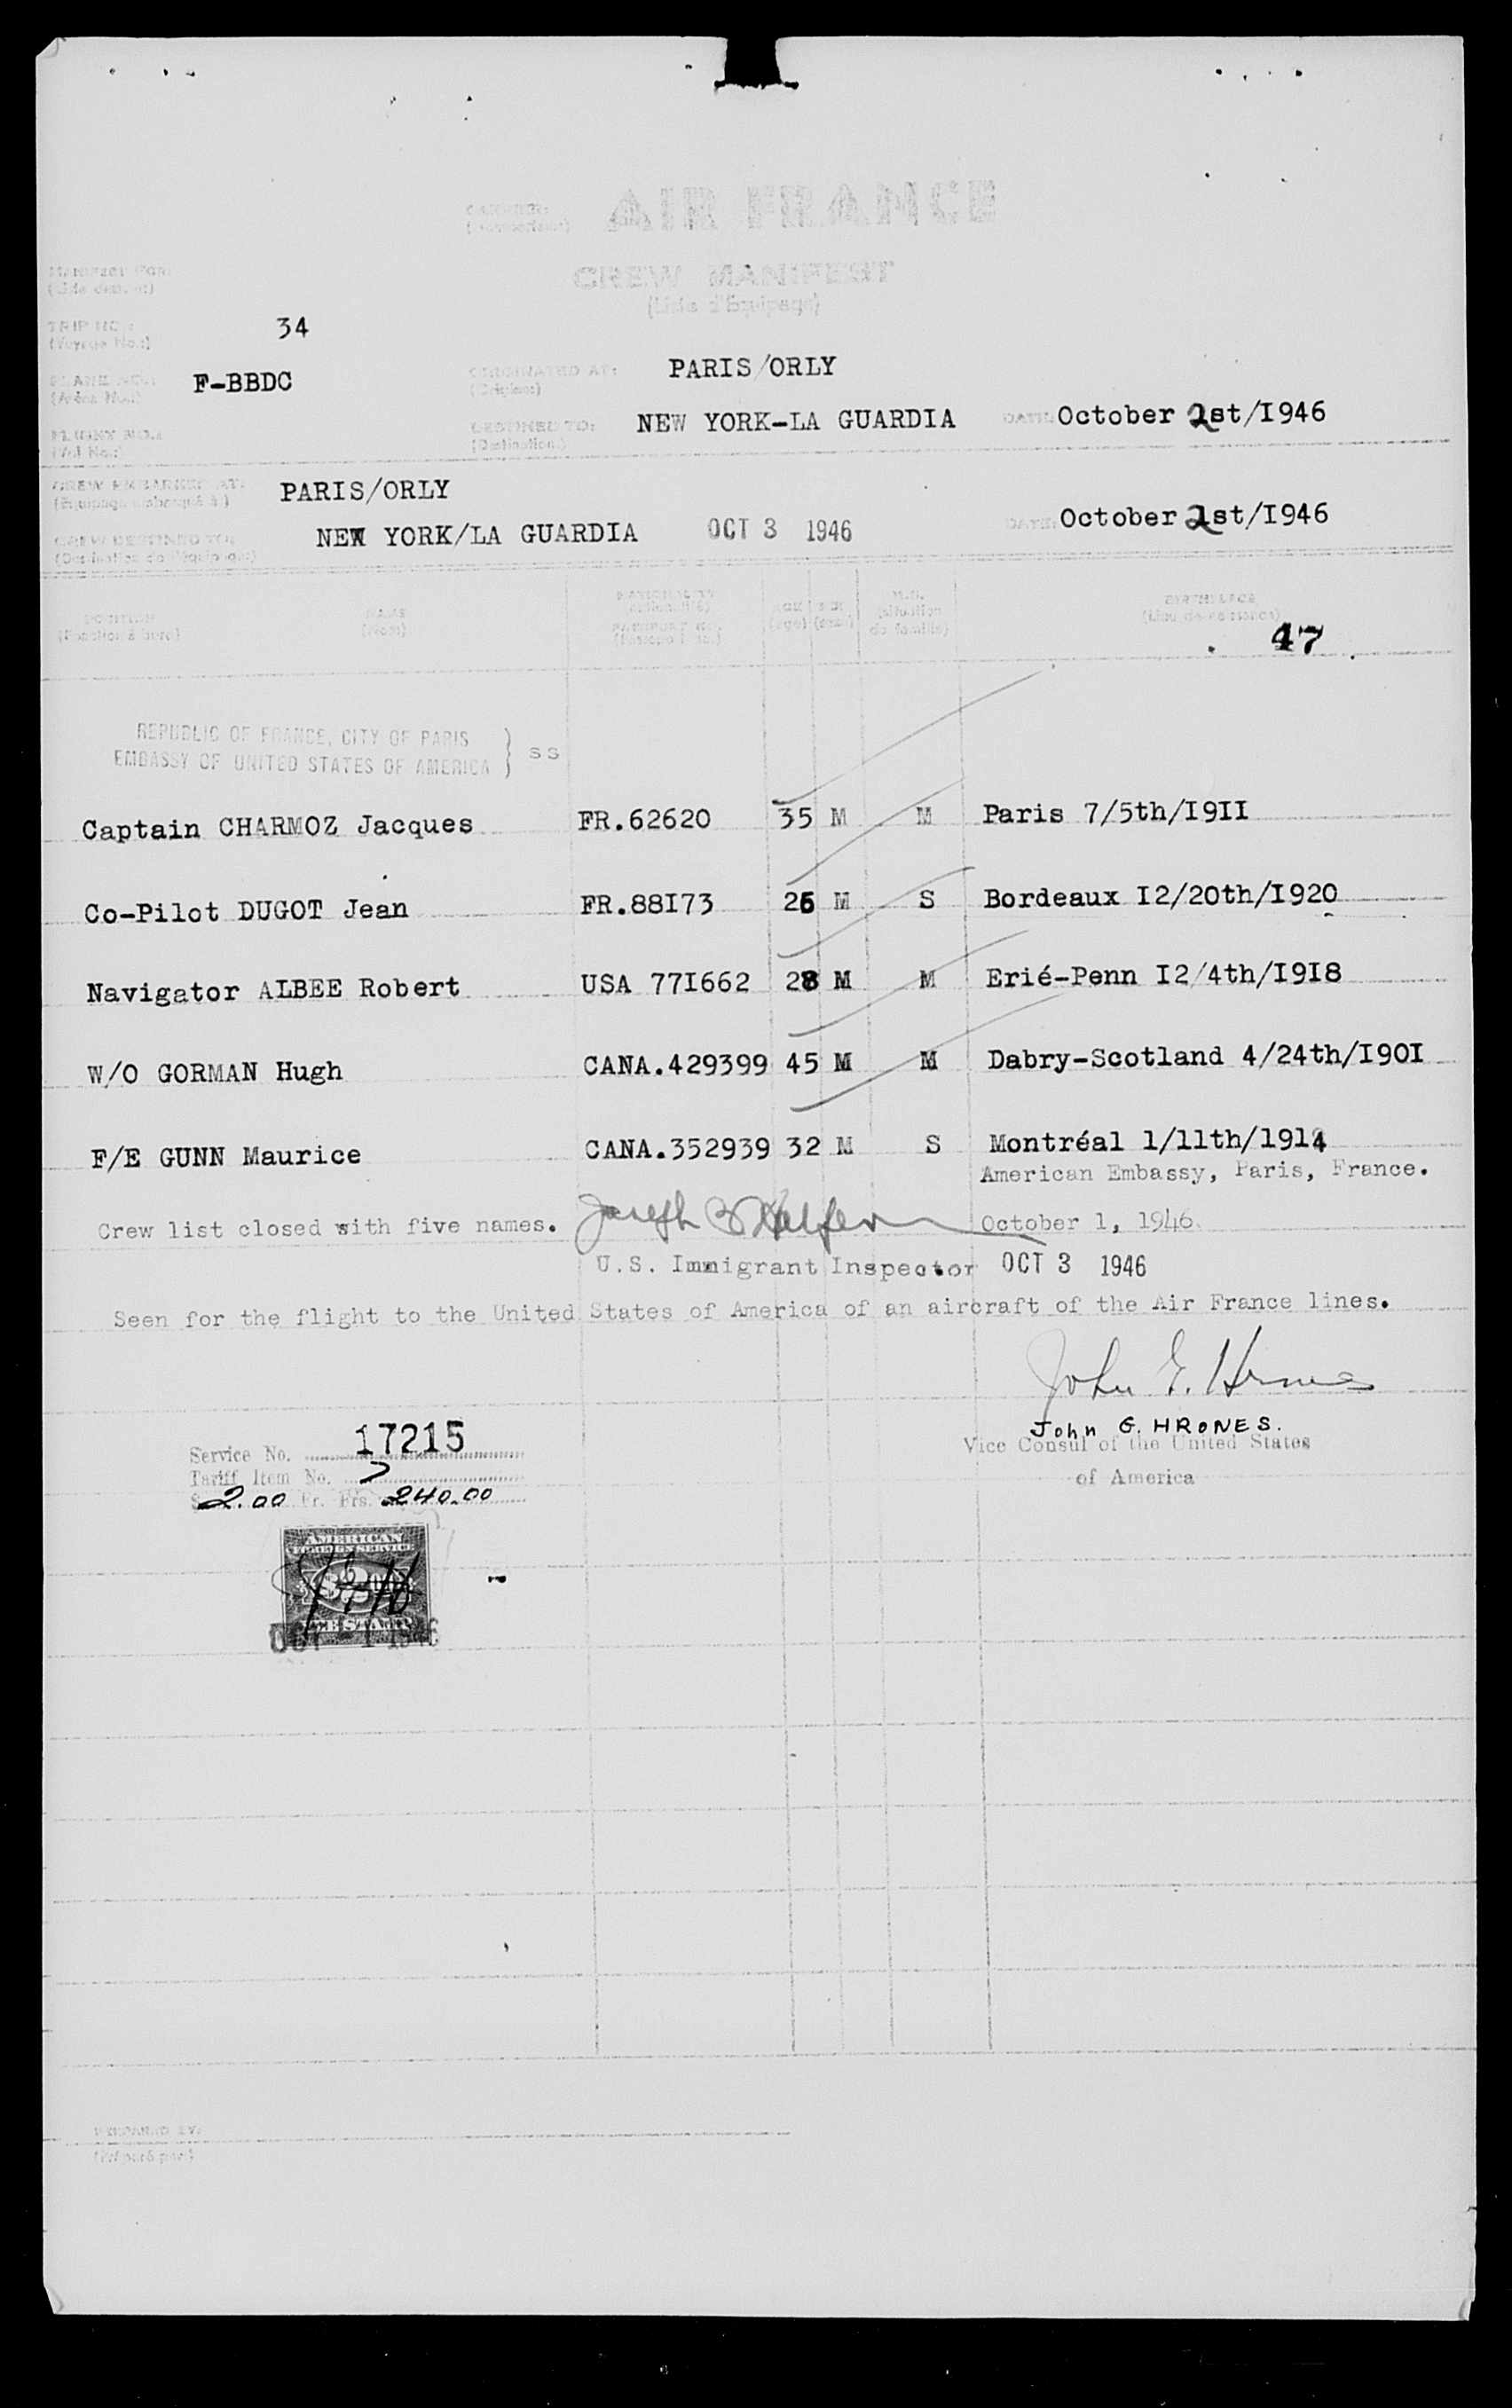 CARRIER: AIR FRANCE
CREW MANIFEST
(Liste d'Equipage)
TRIP NO.: 34
(Voyage No.:)
PLANE NO.: F-BBDC
ORIGINATED AT: PARIS/ORLY
(Origine:)
FLIGHT NO.:
(Vol No.:)
DESTINED TO: NEW YORK-LA GUARDIA DATE: October 2st/I946
(Destination:)
CREW EMBARKED AT: PARIS/ORLY
(Equipage embarqué à:)
CREW DESTINED TO: NEW YORK/LA GUARDIA OCT 3 1946 DATE: October 2st/I946
(Destination de l'équipage:)
POSITION NAME NATIONALITY AGE SEX M.S. BIRTHPLACE
(Nom) (Nationalité) (age) (sexe) (situation (Lieu de naissance)
PASSPORT NO. de famille)
47
REPUBLIC OF FRANCE, CITY OF PARIS
EMBASSY OF UNITED STATES OF AMERICA } SS
Captain CHARMOZ Jacques FR.62620 35 M M Paris 7/5th/I9II
Co-Pilot DUGOT Jean FR.88I73 26 M S Bordeaux I2/20th/I920
Navigator ALBEE Robert USA 77I662 28 M M Erié-Penn I2/4th/I9I8
W/O GORMAN Hugh CANA.429399 45 M M Dabry-Scotland 4/24th/I90I
F/E GUNN Maurice CANA.352939 32 M S Montréal 1/11th/1914
American Embassy, Paris, France.
Crew list closed with five names. October 1, 1946
U.S. Immigrant Inspector OCT 3 1946
Seen for the flight to the United States of America of an aircraft of the Air France lines.
John G. Hrones
John G. HRONES.
Vice Consul of the United States
of America
Service No. 17215
Tariff Item No. 7
$ 2.00 Fr. Frs. 240.00
AMERICAN
FOREIGN SERVICE
$2.00
FEE STAMP
OCT - 1 1946
PREPARED BY:
(Préparé par:)